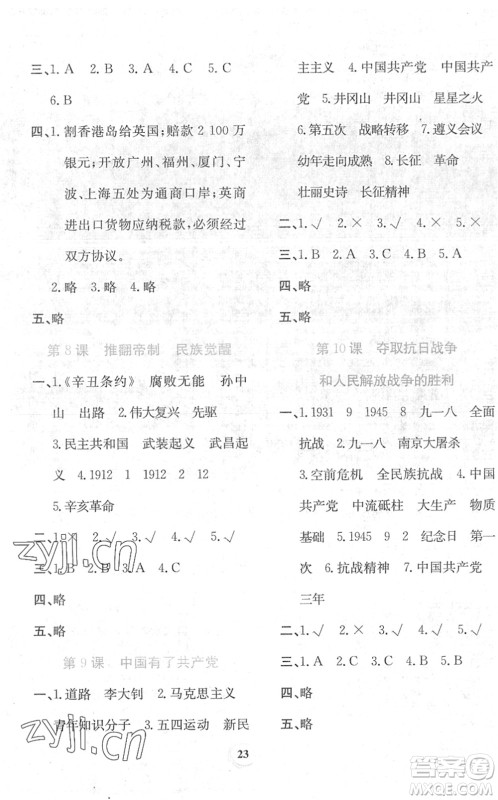 三、1. A　2. B　3. A　4. C　5. C
6. B
四、1. 割香港岛给英国；赔款 2 100 万
银元；开放广州、福州、厦门、宁
波、上海五处为通商口岸；英商
进出口货物应纳税款，必须经过
双方协议。
2. 略　3. 略　4. 略
五、略
第 8 课　推翻帝制　民族觉醒
一、1.《辛丑条约》　腐败无能　孙中
山　出路　2. 伟大复兴　先驱
3. 民主共和国　武装起义　武昌起
义　4. 1912　1　1912　2　12
5. 辛亥革命
二、1. ×　2. √　3. √　4. √　5. √
三、1. B　2. B　3. A　4. C
四、略
五、略
第 9 课　中国有了共产党
一、1. 道路　李大钊　2. 马克思主义
青年知识分子　3. 五四运动　新民
主主义　4. 中国共产党
5. 井冈山　井冈山　星星之火
6. 第五次　战略转移　7. 遵义会议
幼年走向成熟　8. 长征　革命
壮丽史诗　长征精神
二、1. √　2. ×　3. ×　4. √　5. √
三、1. B　2. A　3. C　4. B　5. A
四、略
五、略
第 10 课　夺取抗日战争
和人民解放战争的胜利
一、1. 1931　9　1945　8　九一八　全面
抗战　2. 九一八　南京大屠杀
3. 空前危机　全民族抗战　4. 中国
共产党　中流砥柱　大生产　物质
基础　5. 1945　9　2　纪念日　第一
次　6. 抗战精神　7. 中国共产党
三年
二、1. √　2. ×　3. √　4. √　5. √
三、1. C　2. C　3. A　4. B　5. B
四、略
五、略
23
zyjl.cn
答案圈
MXQE.COM